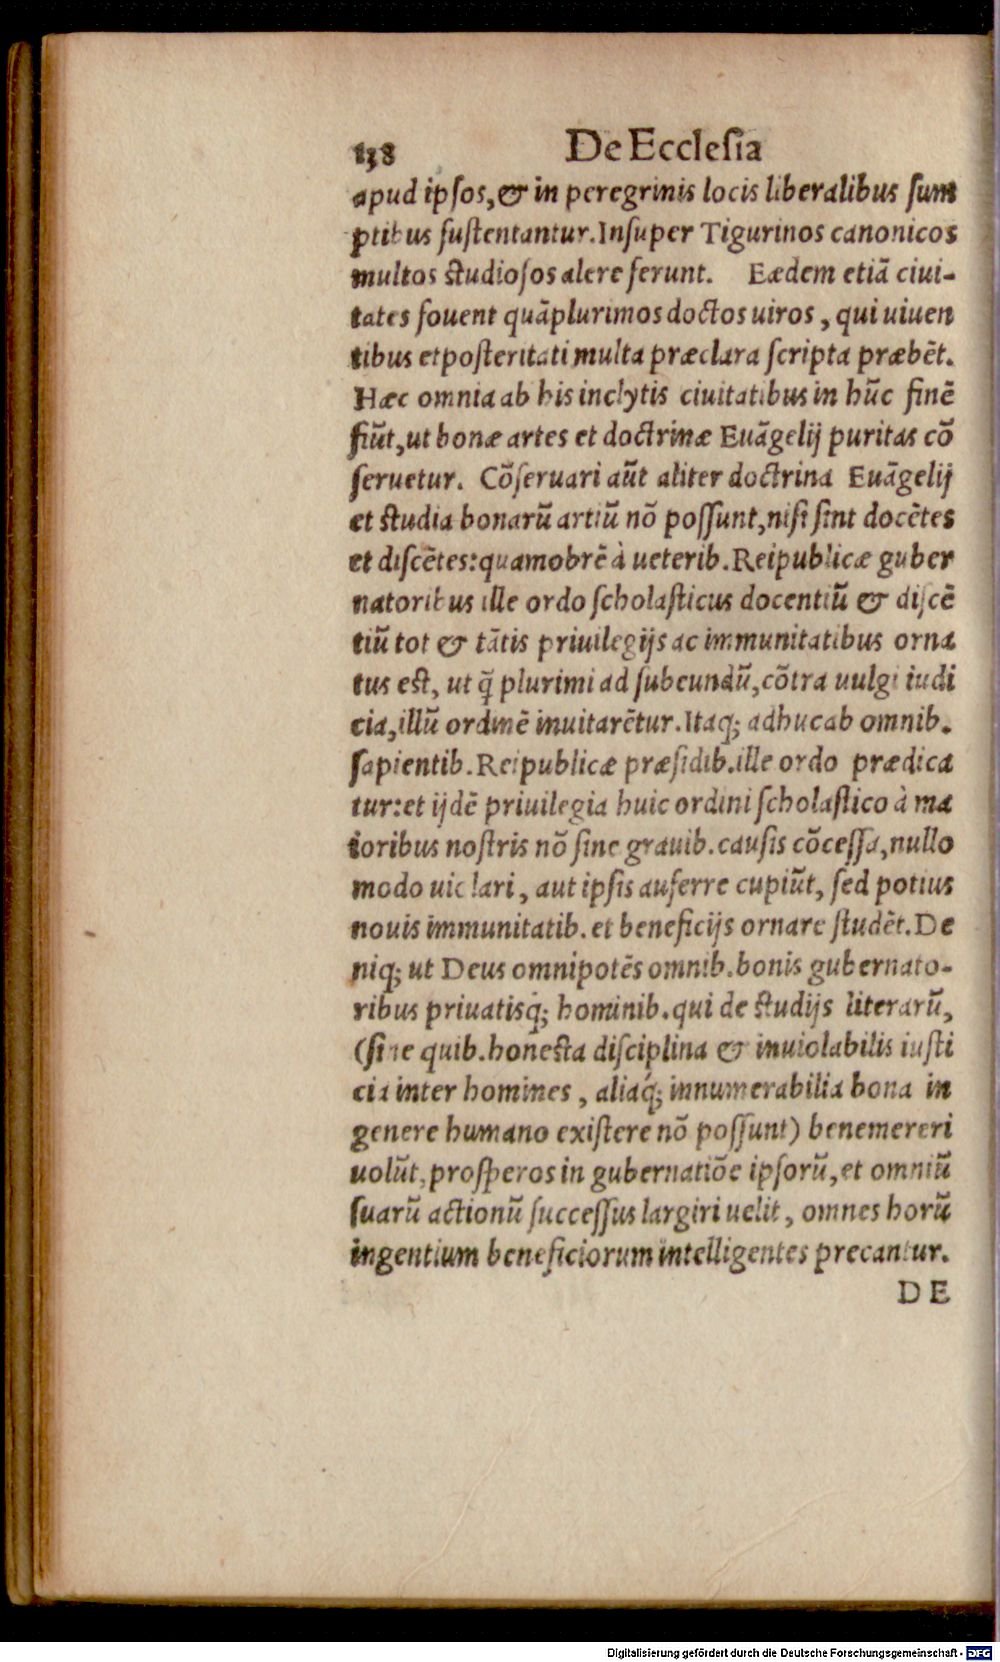 138 De Ecclesia
apud ipſos, & in peregrinis locis liberalibus ſum
ptibus ſuſtentantur. Inſuper Tigurinos canonicos
multos ſtudioſos alere ferunt. Eædem etiā ciui-
tates fouent quāplurimos doctos uiros, qui uiuen
tibus et poſteritati multa præclara ſcripta præbēt.
Hæc omnia ab his inclytis ciuitatibus in hūc finē
fiūt, ut bonæ artes et doctrinæ Euāgelij puritas cō
ſeruetur. Cōſeruari aūt aliter doctrina Euāgelij
et ſtudia bonarū artiū nō poſſunt, niſi ſint docētes
et diſcētes: quamobrē à ueterib. Reipublicæ guber
natoribus ille ordo ſcholaſticus docentiū & diſcē
tiū tot & tātis priuilegijs ac immunitatibus orna
tus eſt, ut q̄ plurimi ad ſubeundū, cōtra uulgi iudi
cia, illū ordinē inuitarētur. Itaq; adhuc ab omnib.
ſapientib. Reipublicæ præſidib. ille ordo prædica
tur: et ijdē priuilegia huic ordini ſcholaſtico à ma
ioribus noſtris nō ſine grauib. cauſis cōceſſa, nullo
modo uiolari, aut ipſis auferre cupiūt, ſed potius
nouis immunitatib. et beneficijs ornare ſtudēt. De
niq; ut Deus omnipotēs omnib. bonis gubernato-
ribus priuatisq́; hominib. qui de ſtudijs literarū,
(ſine quib. honeſta diſciplina & inuiolabilis iuſti
cia inter homines, aliaq́; innumerabilia bona in
genere humano exiſtere nō poſſunt) benemereri
uolūt, proſperos in gubernatiōe ipſorū, et omniū
ſuarū actionū ſucceſſus largiri uelit, omnes horū
ingentium beneficiorum intelligentes precantur.
DE
Digitalisierung gefördert durch die Deutsche Forschungsgemeinschaft - DFG